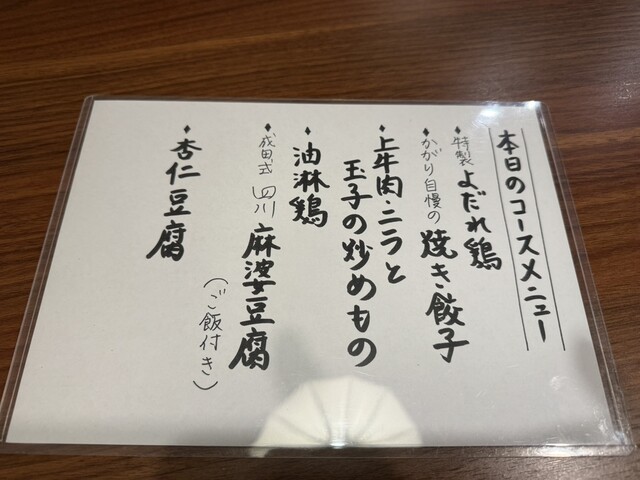 本日のコースメニュー
♦特製 よだれ鶏
♦かがり自慢の 焼き餃子
♦上牛肉・ニラと
玉子の炒めもの
♦油淋鶏
♦成田式 四川 麻婆豆腐
(ご飯付き)
♦杏仁豆腐